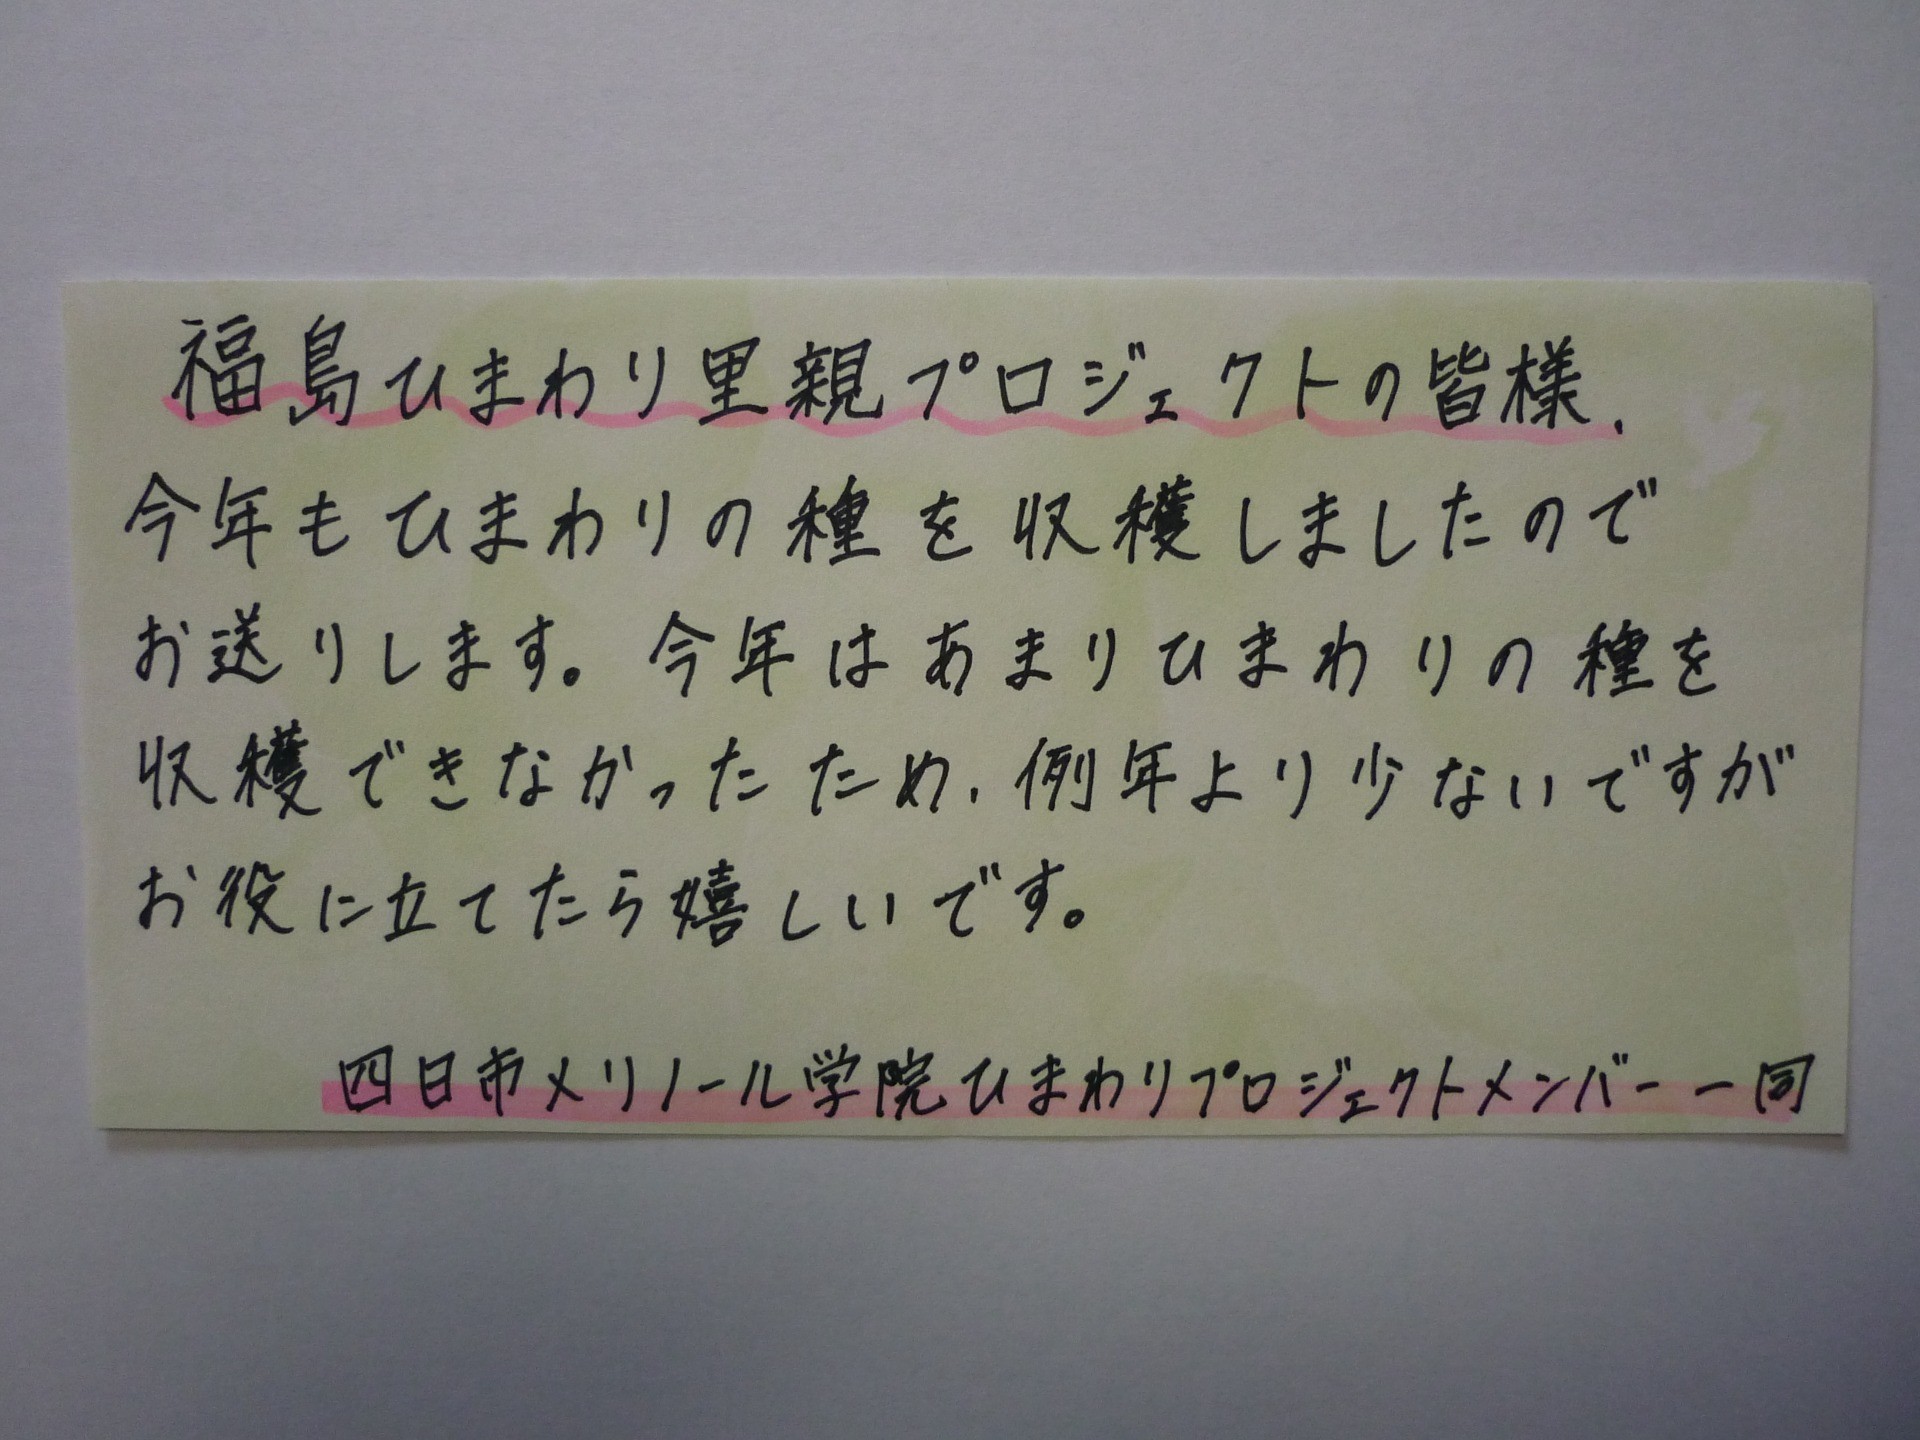 福島ひまわり里親プロジェクトの皆様、
今年もひまわりの種を収穫しましたので
お送りします。今年はあまりひまわりの種を
収穫できなかったため、例年より少ないですが
お役に立てたら嬉しいです。
四日市メリノール学院ひまわりプロジェクトメンバー一同